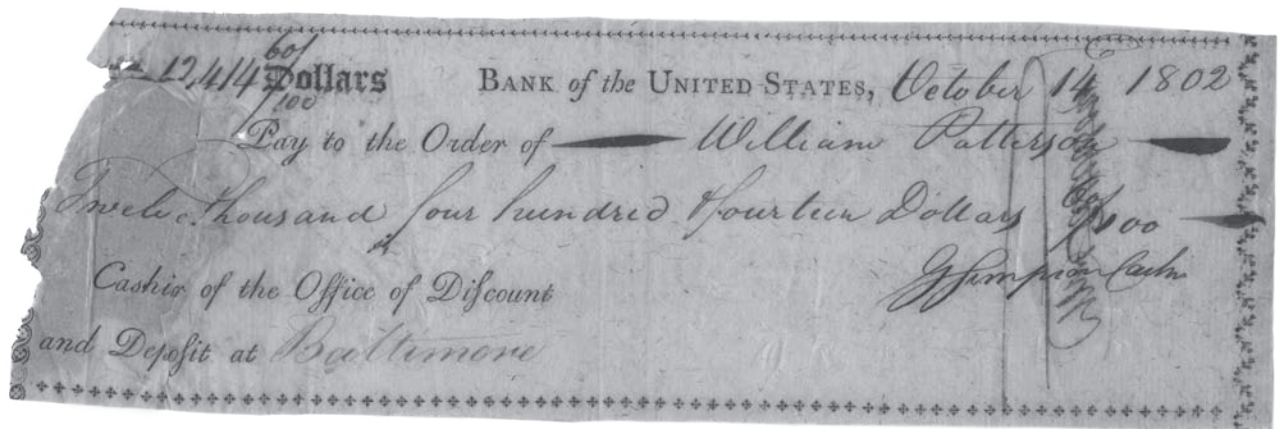 12,414 60/100 Dollars BANK of the UNITED STATES, October 14 1802
Pay to the Order of William Patterson
Twelve thousand four hundred & fourteen Dollars 60/100
G Simpson Cashr
Cashir of the Office of Diſcount
and Depoſit at Baltimore